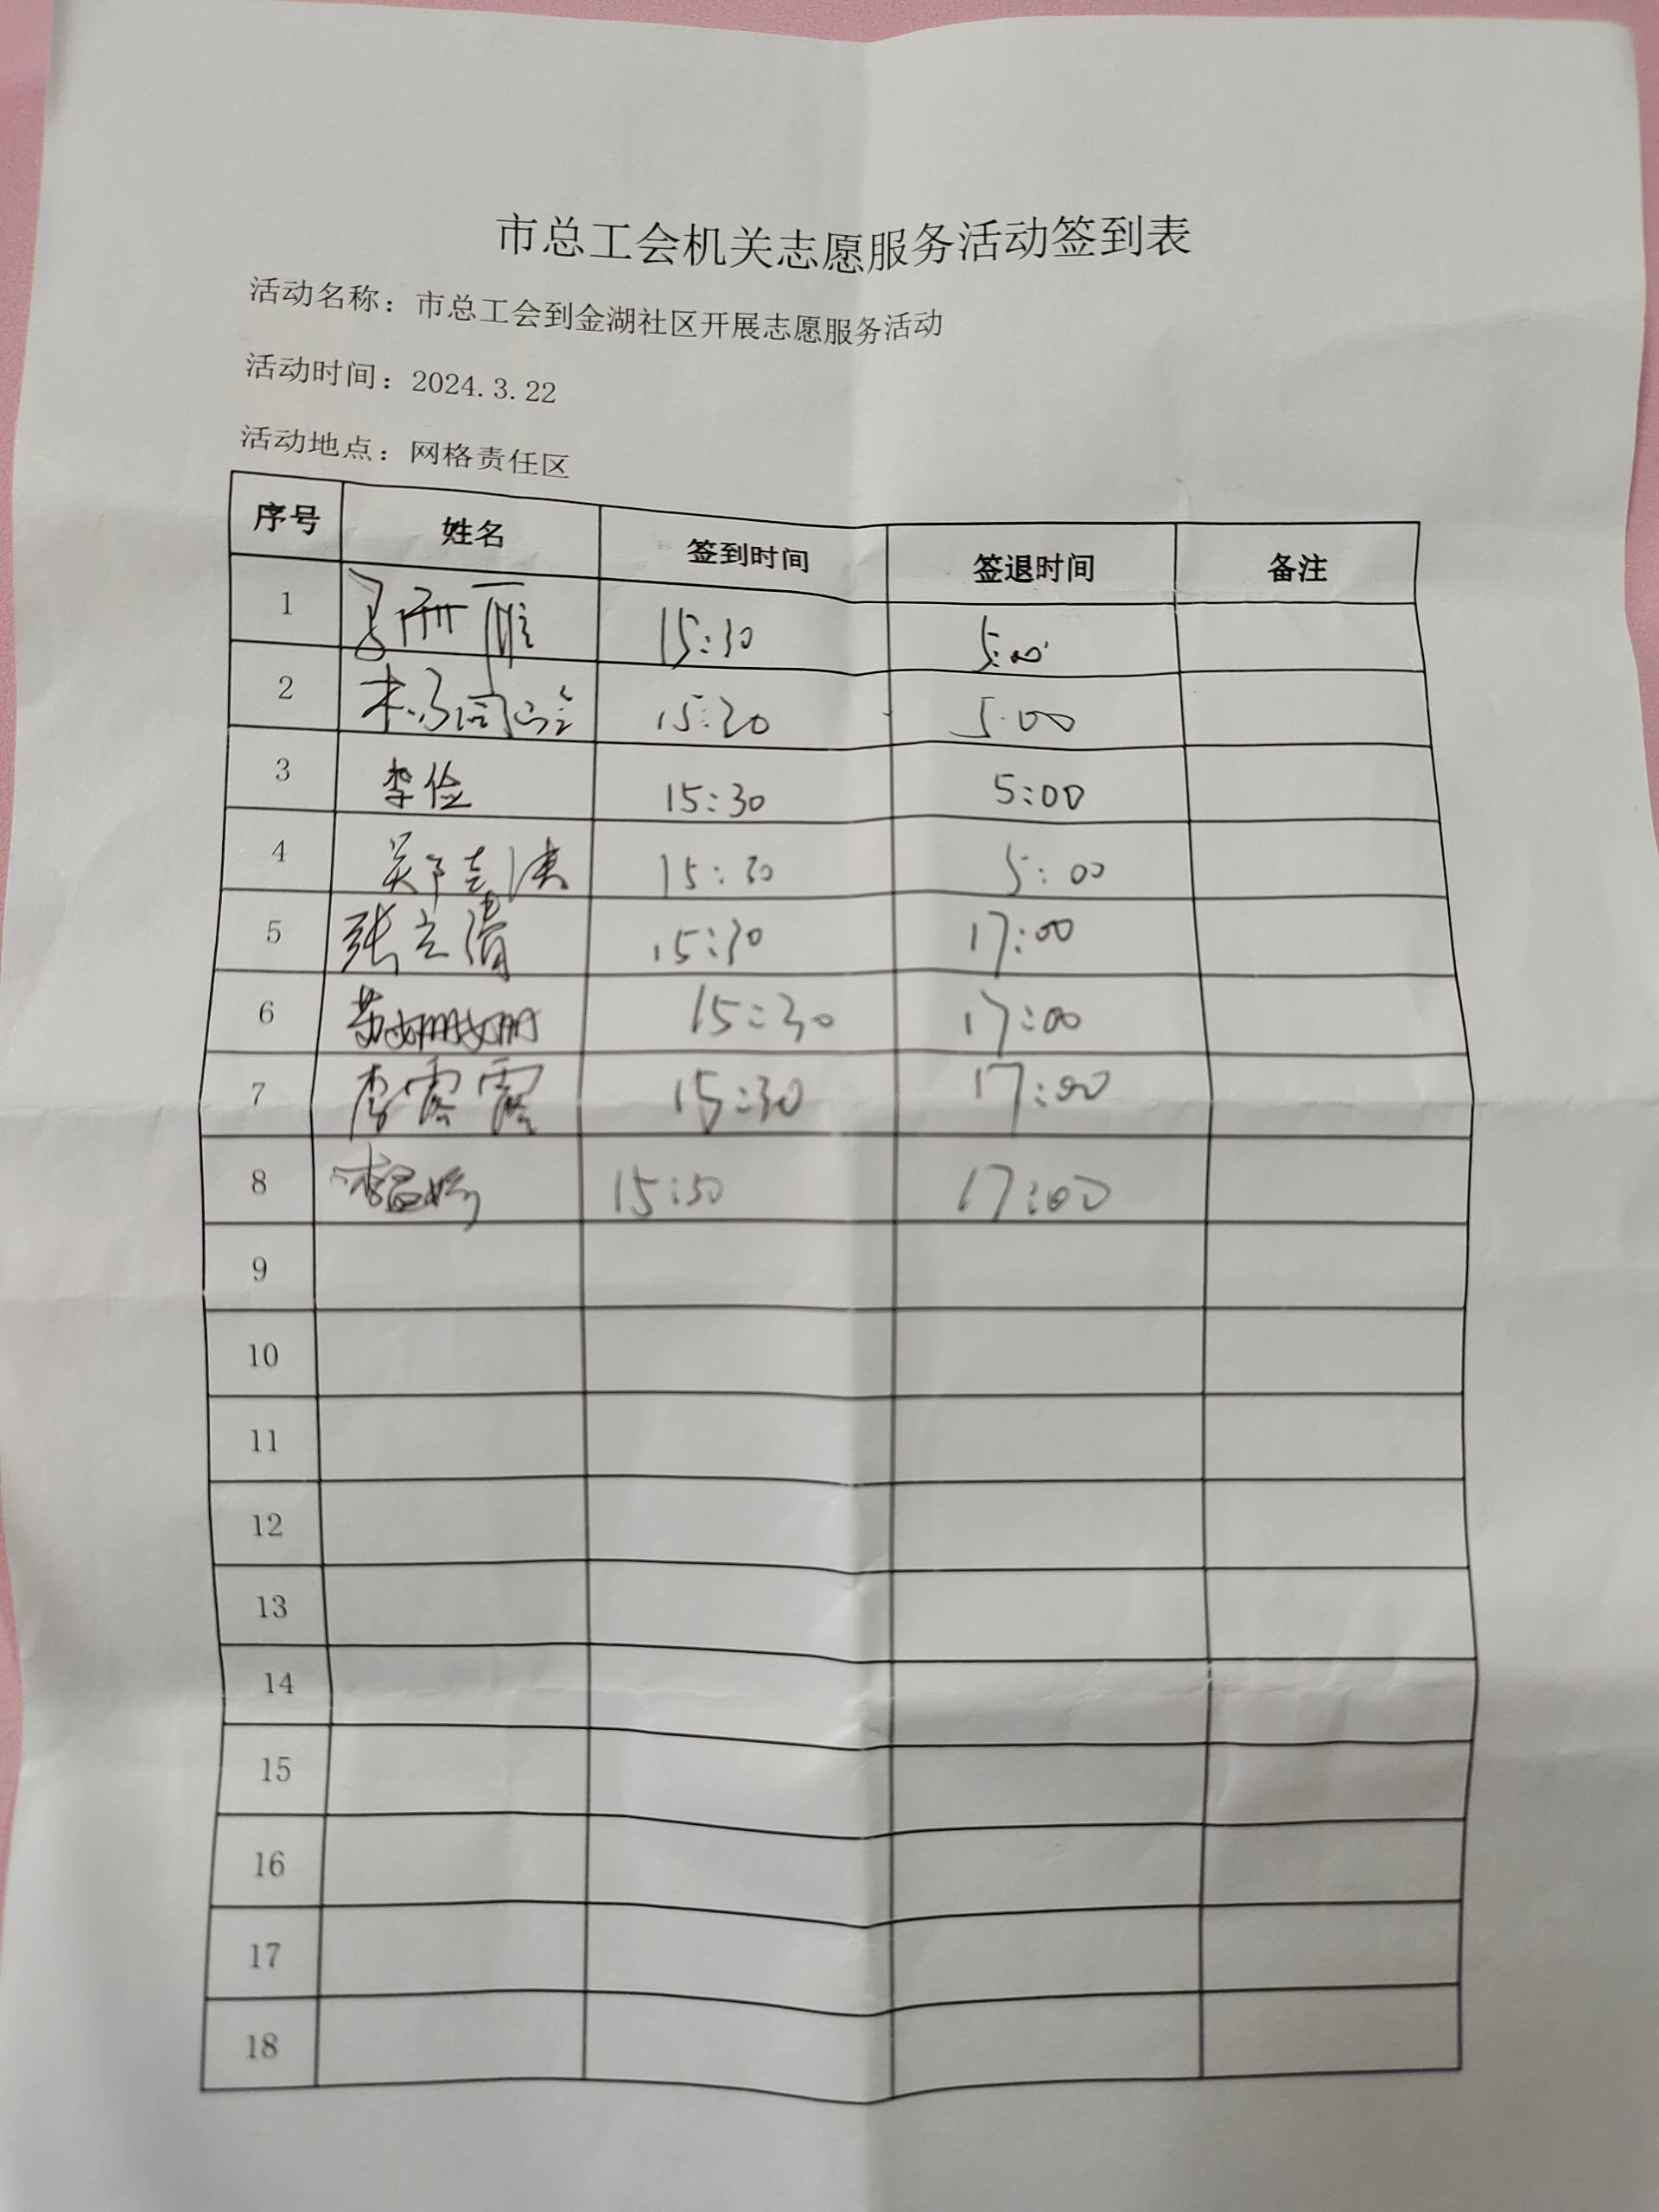 市总工会机关志愿服务活动签到表
活动名称：市总工会到金湖社区开展志愿服务活动
活动时间：2024.3.22
活动地点：网格责任区
序号 姓名 签到时间 签退时间 备注
1 15:30 5:00
2 15:20 5:00
3 李俭 15:30 5:00
4 15:30 5:00
5 张立清 15:30 17:00
6 苏姗姗 15:30 17:00
7 李露露 15:30 17:00
8 15:30 17:00
9
10
11
12
13
14
15
16
17
18